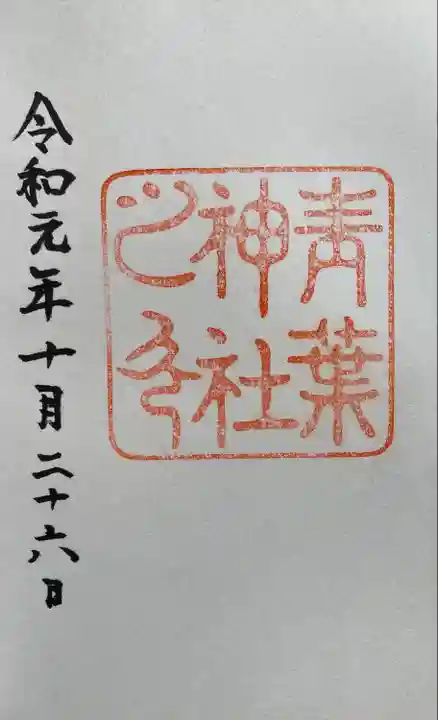 青葉
神社
之印
令和元年十月二十六日